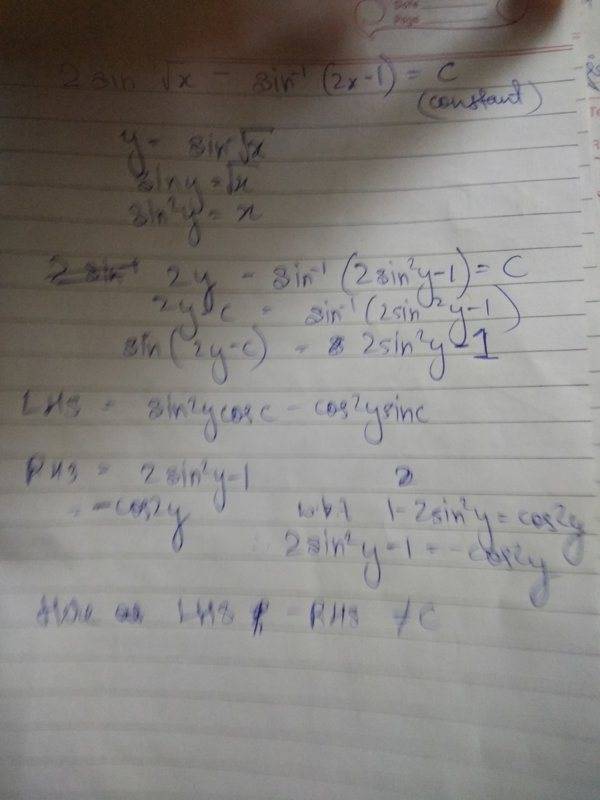 Date
Page
2 sin √x - sin⁻¹ (2x-1) = C
(constant)
y = sin √x
sin y = √x
sin²y = x
2y - sin⁻¹ (2sin²y-1) = C
2y-c = sin⁻¹ (2sin²y-1)
sin (2y-c) = 2sin²y-1
LHS = sin2y cos c - cos2y sin c
RHS = 2sin²y-1
= -cos2y
w.k.t 1-2sin²y = cos2y
∴ 2sin²y-1 = -cos2y
LHS - RHS ≠ C